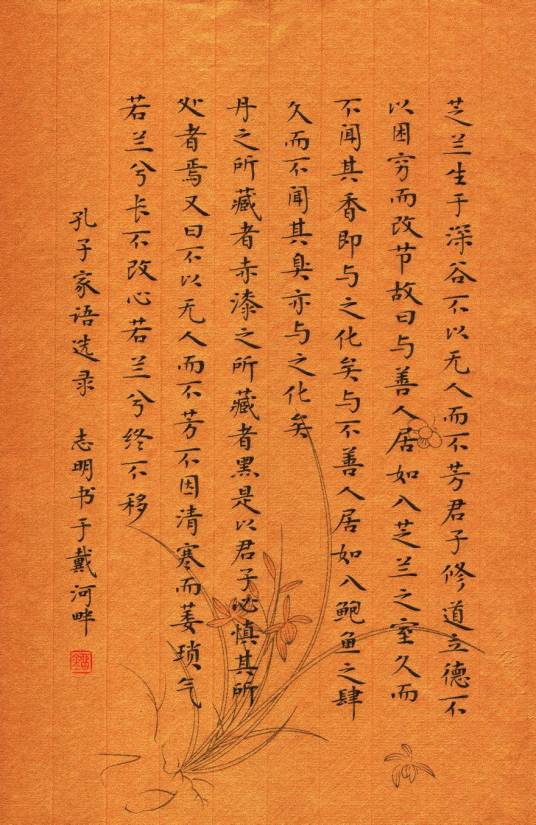 芝兰生于深谷不以无人而不芳君子修道立德不
以困穷而改节故曰与善人居如入芝兰之室久而
不闻其香即与之化矣与不善人居如入鲍鱼之肆
久而不闻其臭亦与之化矣
丹之所藏者赤漆之所藏者黑是以君子必慎其所
处者焉又曰不以无人而不芳不因清寒而萎琐气
若兰兮长不改心若兰兮终不移
孔子家语选录 志明书于戴河畔